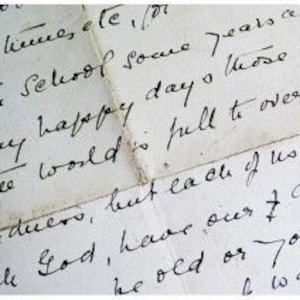 times etc, for
School some years a
happy days those
world is full to over
dness, but each of us
God, have our
be old or yo